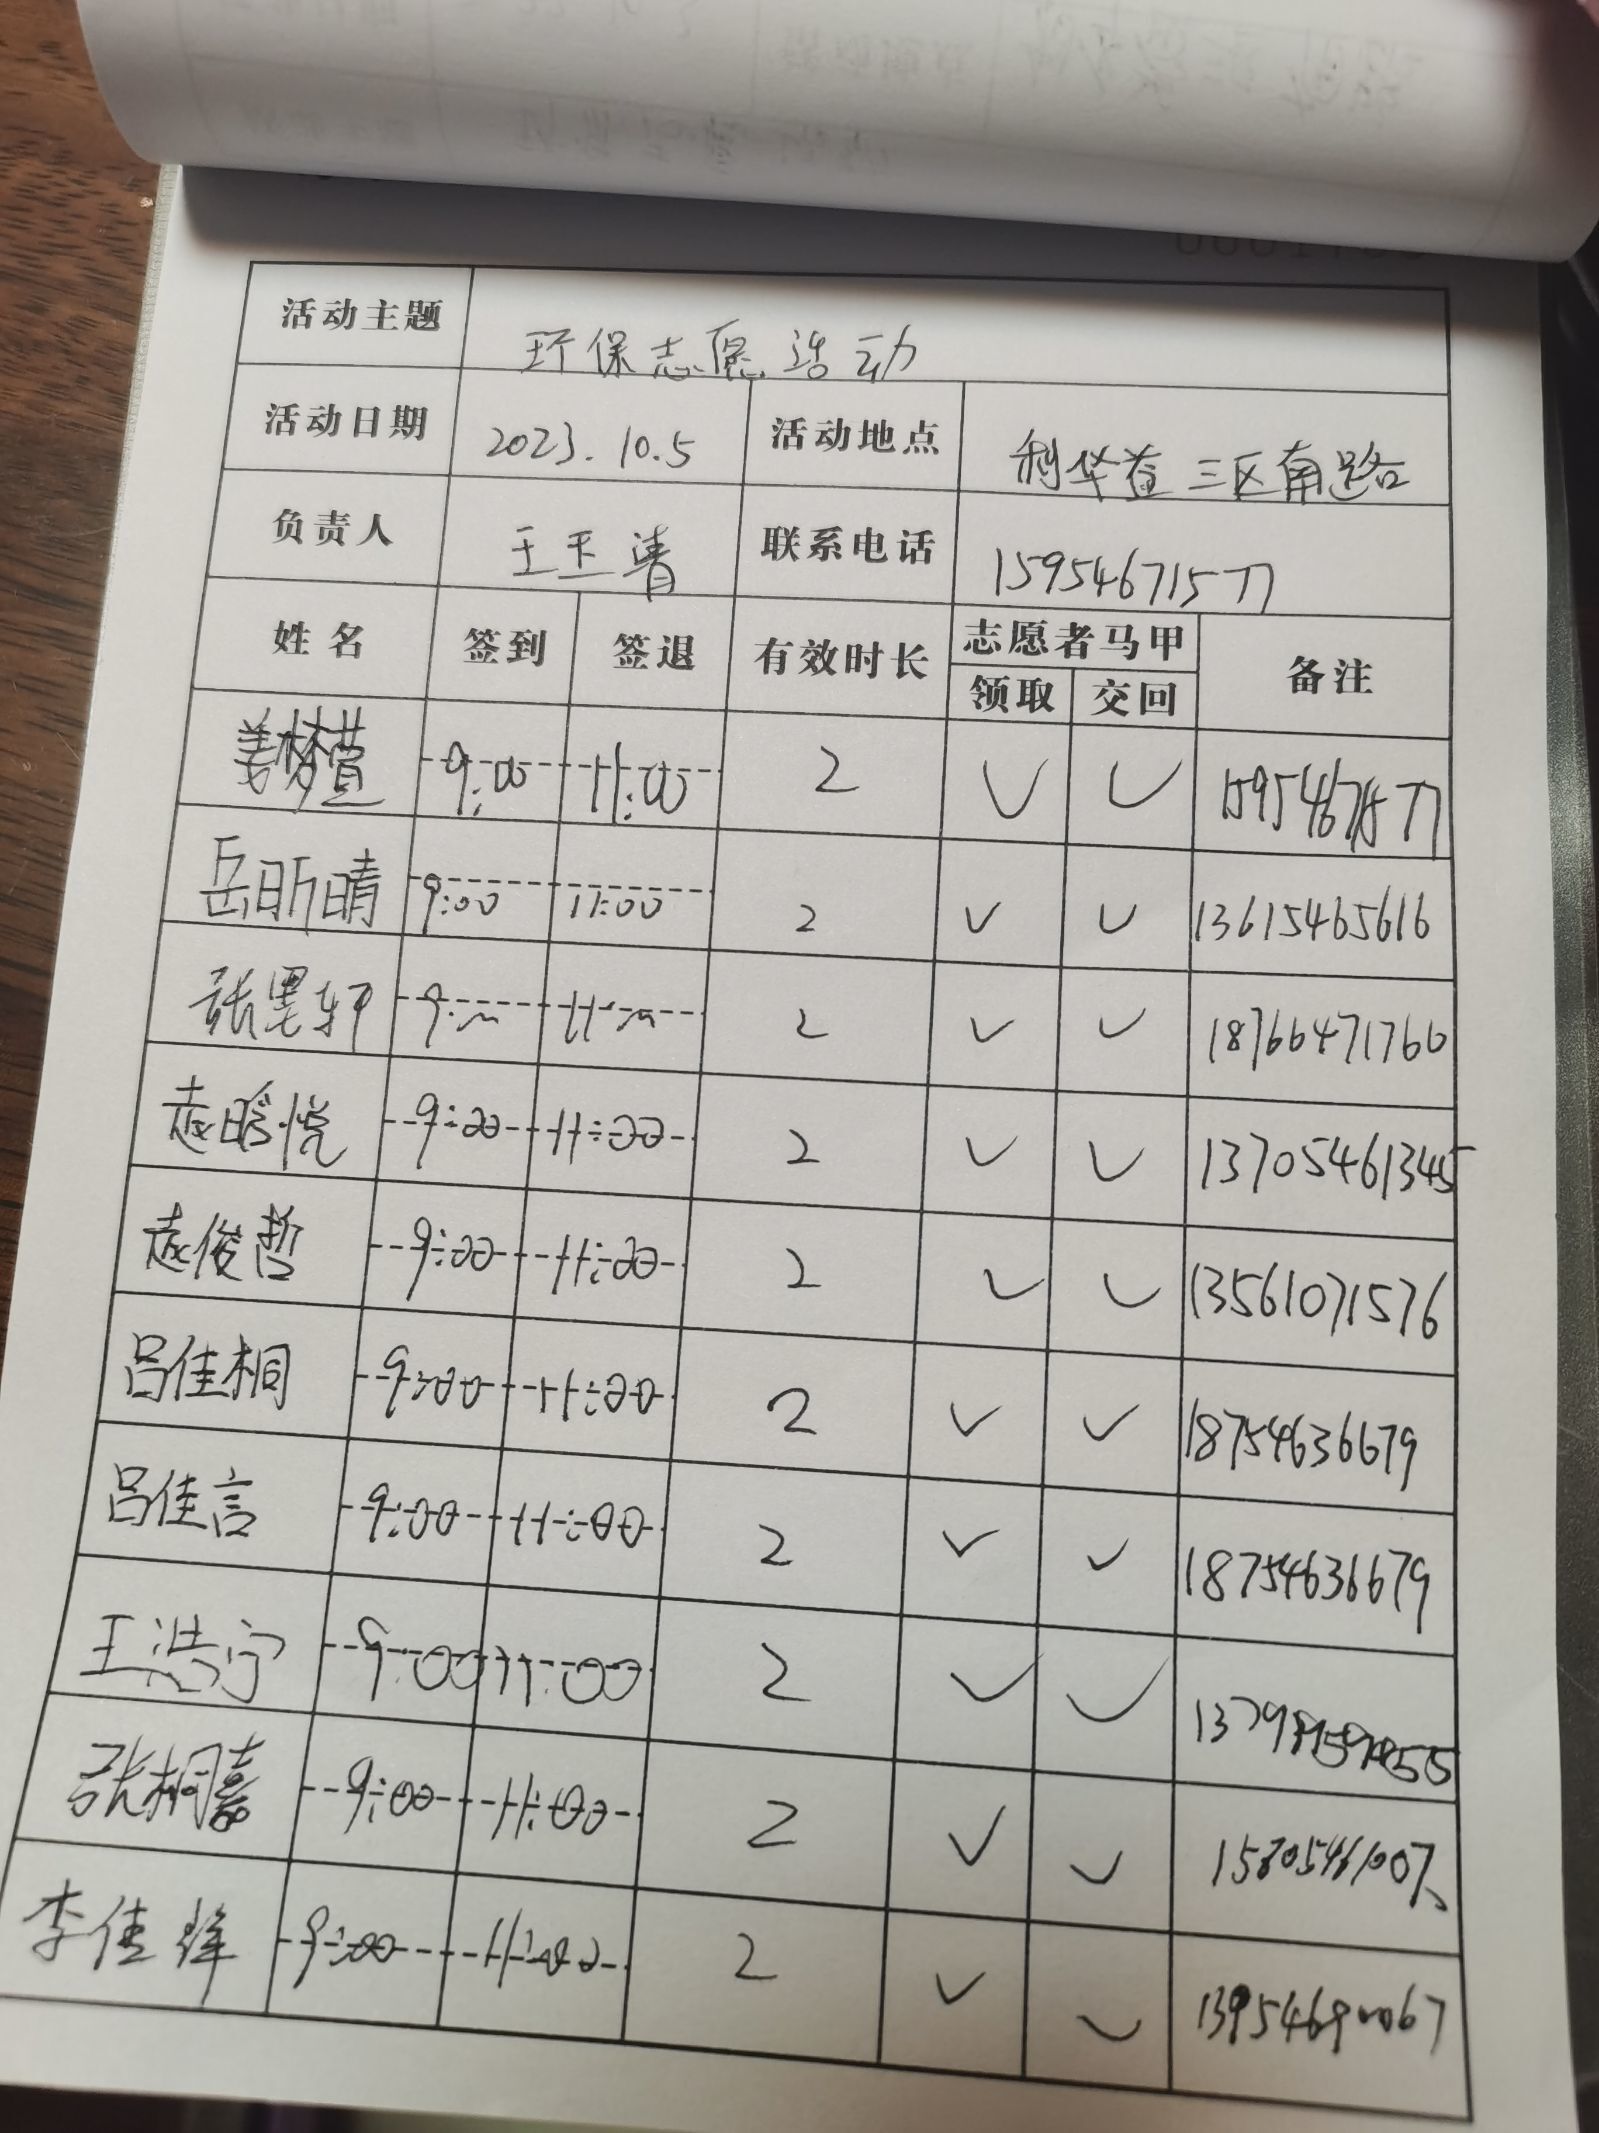 活动主题 环保志愿活动
活动日期 2023.10.5 活动地点 利华益三区南路
负责人 王玉清 联系电话 15954671577
姓名 签到 签退 有效时长 志愿者马甲 备注
领取 交回
姜梦萱 9:00 11:00 2 ✓ ✓ 15954671577
岳昕晴 9:00 11:00 2 ✓ ✓ 13615465616
张墨轩 9:00 11:00 2 ✓ ✓ 18766471760
赵晗悦 9:00 11:00 2 ✓ ✓ 13705461345
赵俊哲 9:00 11:00 2 ✓ ✓ 13561071576
吕佳桐 9:00 11:00 2 ✓ ✓ 18754636679
吕佳言 9:00 11:00 2 ✓ ✓ 18754636679
王浩宁 9:00 11:00 2 ✓ ✓
张桐嘉 9:00 11:00 2 ✓ ✓
李佳 9:00 11:00 2 ✓ ✓